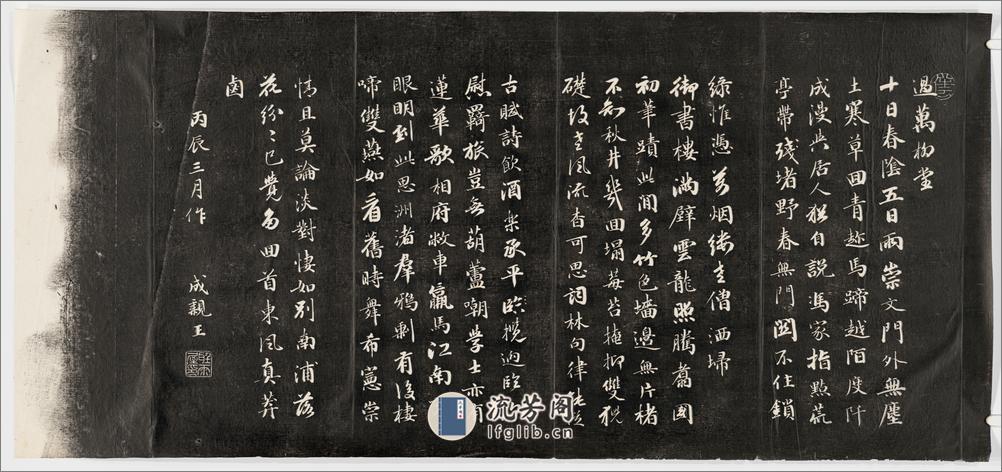 過萬柳堂
十日春陰五日雨崇文門外無塵
土寒草回青趂馬蹄越陌度阡
成漫興居人猶自說馮家指點荒
亭帶殘堵野春無門關不住鎖
綠惟憑萬烟縷老僧洒埽
御書樓滿壁雲龍照騰翥國
初筆蹟此間多竹色墻邊無片楮
不知秋井幾回塌莓苔掩抑雙猊
礎故老風流杳可思詞林句律
古賦詩飲酒樂承平臨攬迴
慰羇旅豈無葫蘆嘲學士亦有
蓮華歌相府敝車羸馬江南
眼明到此思洲渚羣鴉剩有後棲
啼雙燕如看舊時舞布憲崇
情且莫論淡對悽如別南浦落
花紛〻已覺多回首東風真莽
鹵
丙辰三月作
成親王
流芳阁
lfglib.cn